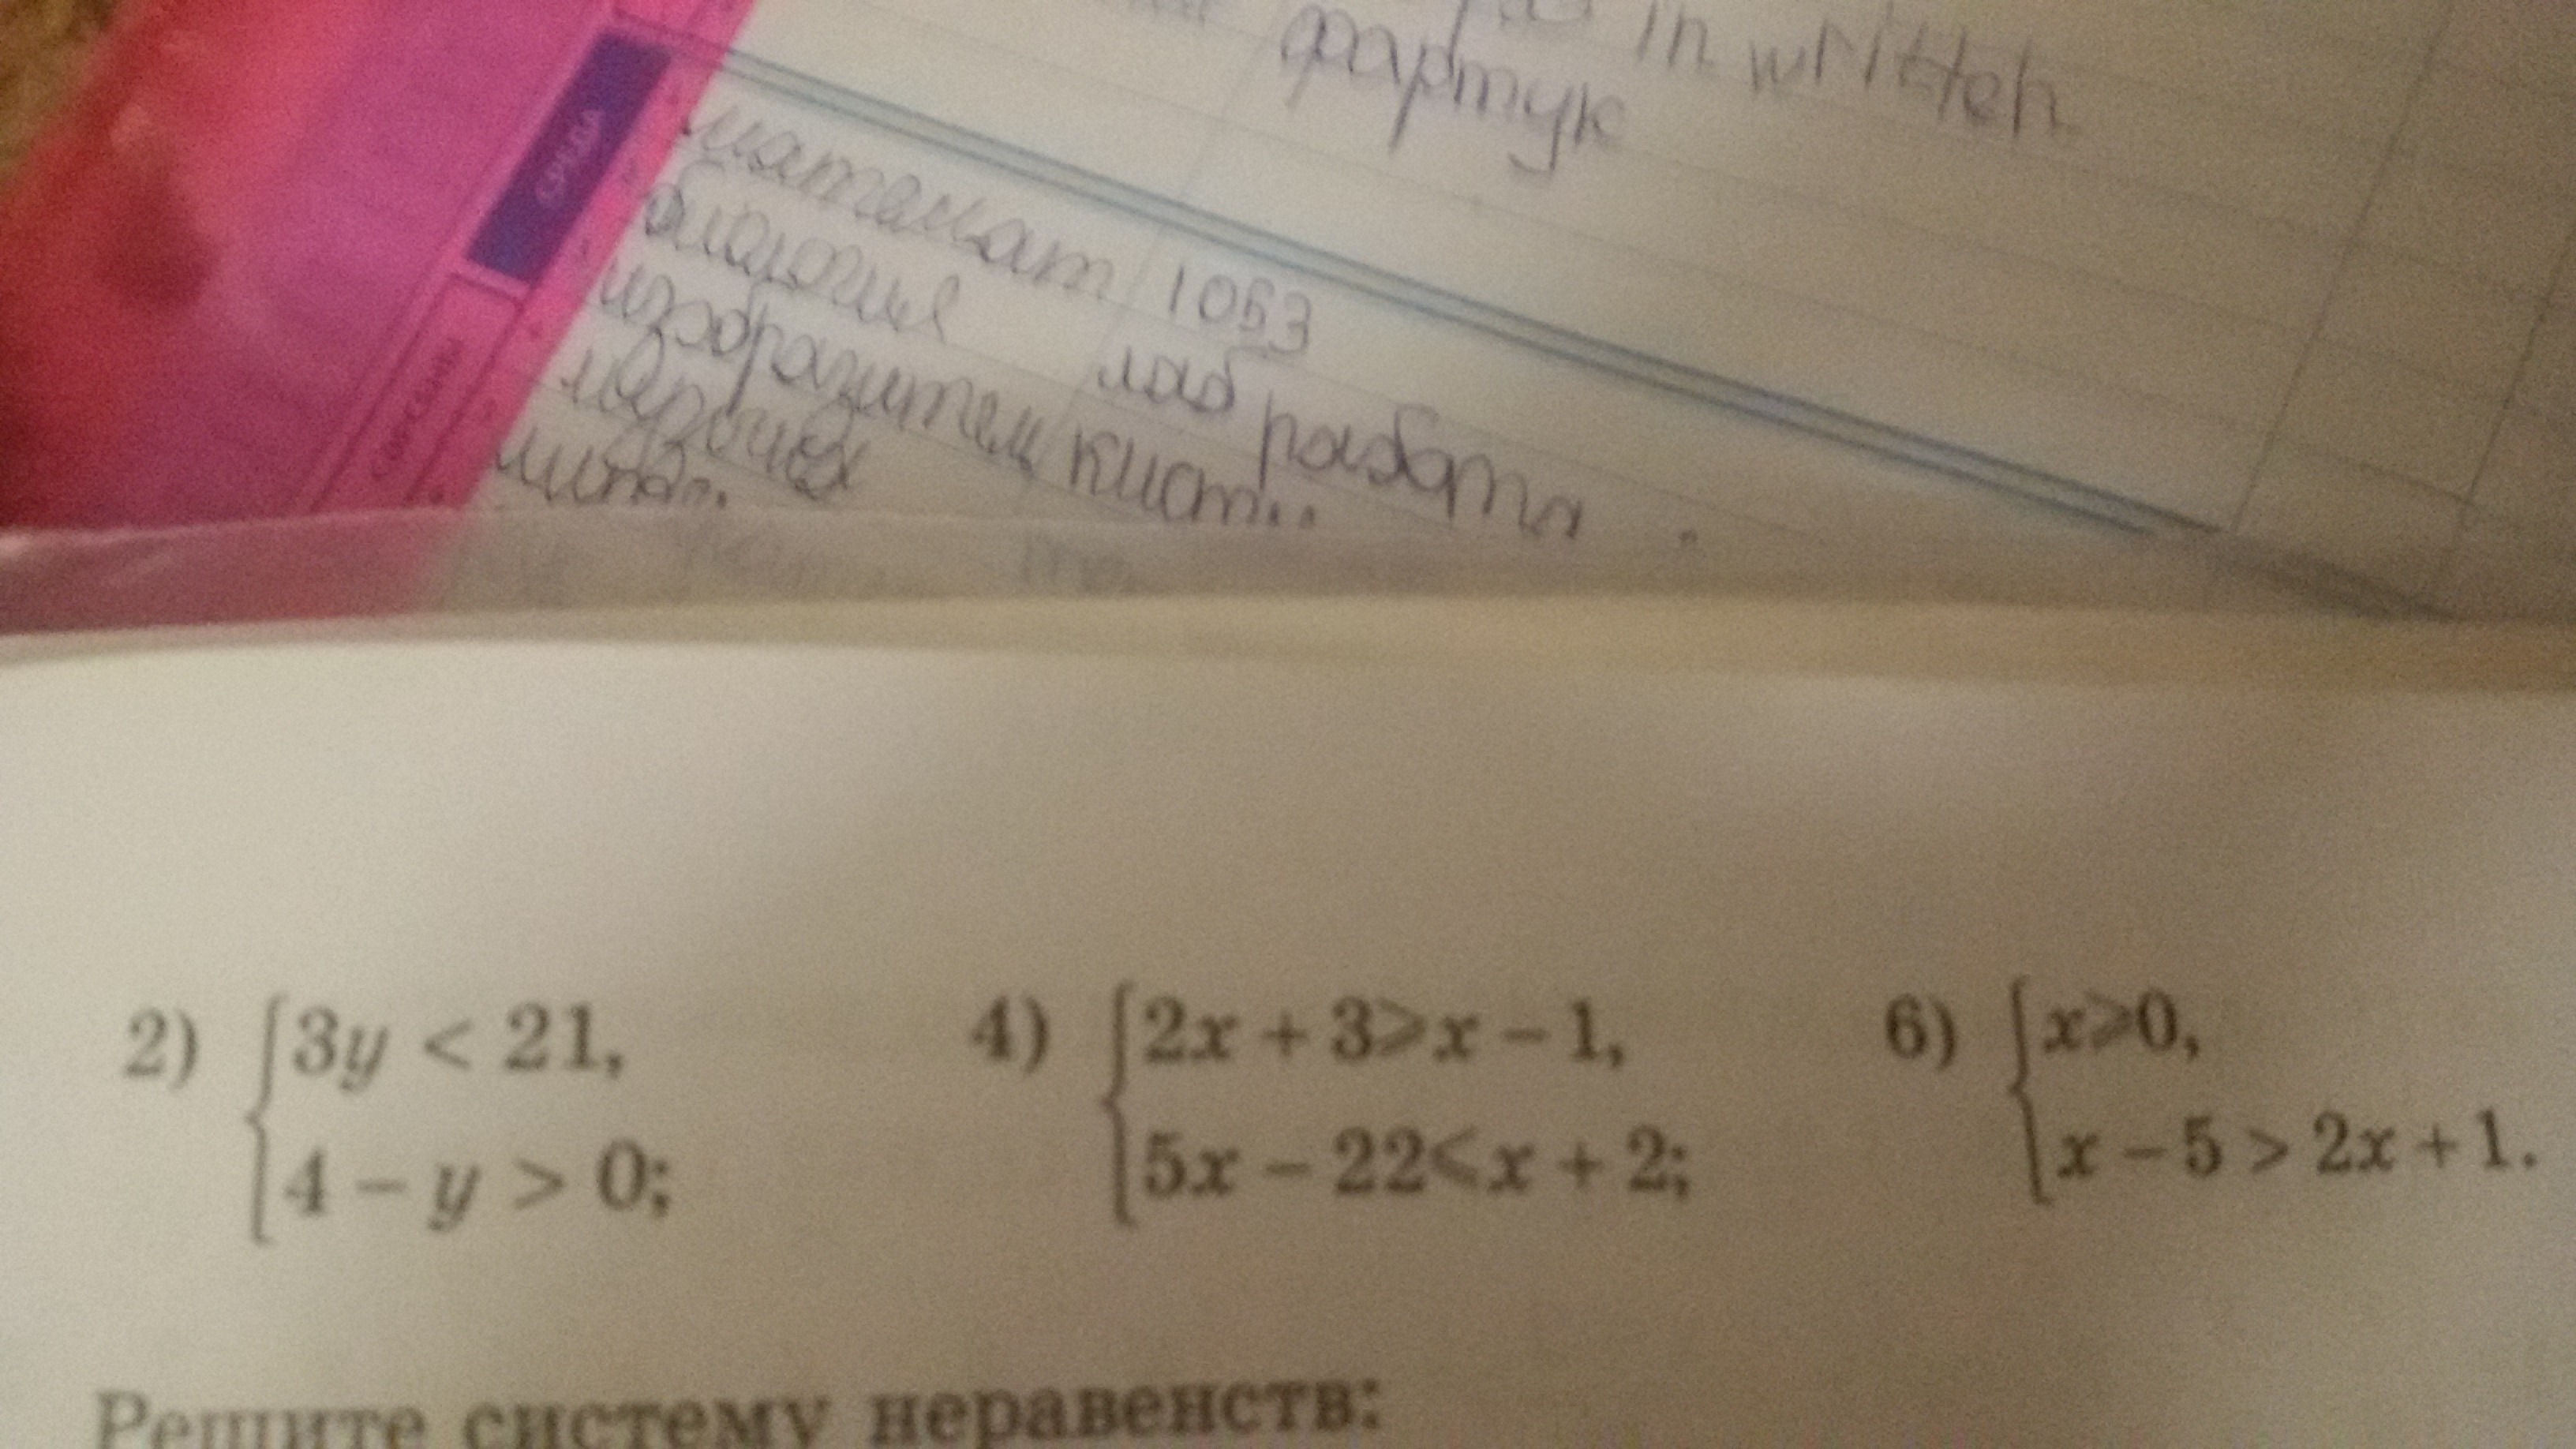 in written
фартук
СРЕДА
математ 1053
биология лаб работы
изобразител кисти
2) { 3y < 21,
4 − y > 0;
4) { 2x + 3 ⩾ x − 1,
5x − 22 ⩽ x + 2;
6) { x ⩾ 0,
x − 5 > 2x + 1.
Решите систему неравенств: